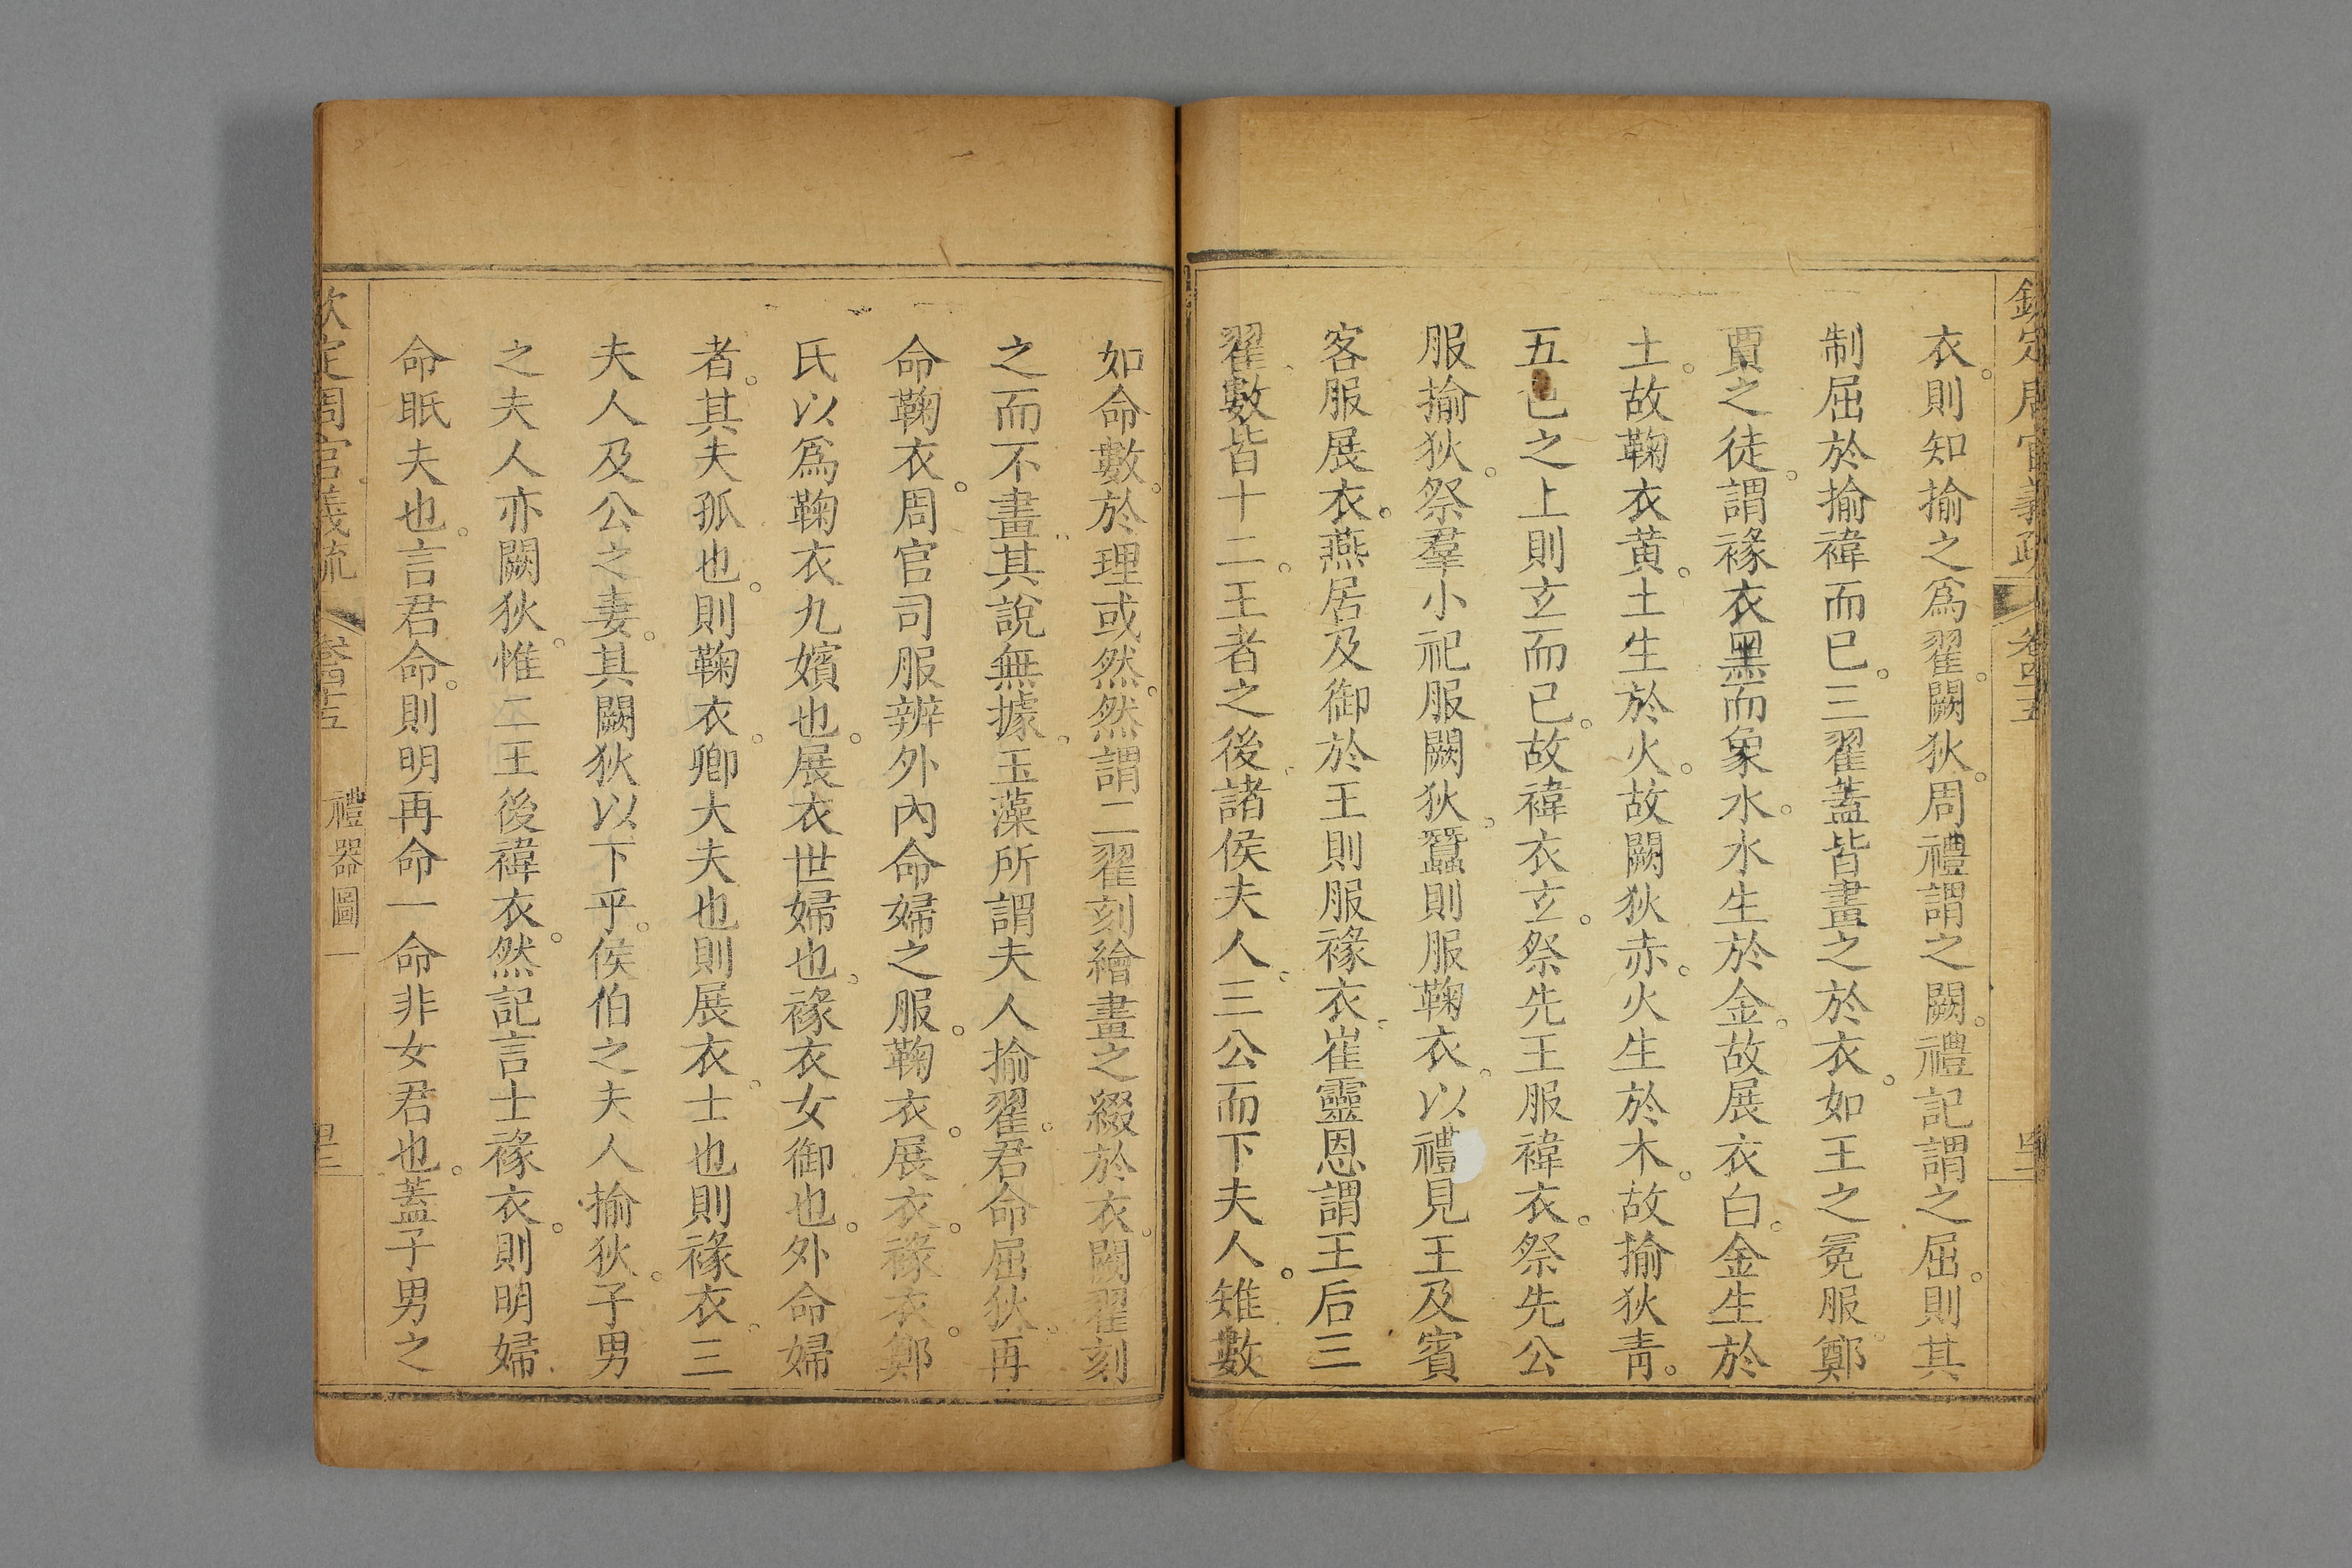 欽定周官義疏 卷四十五
衣。則知揄之爲翟。闕狄。周禮謂之闕。禮記謂之屈。則其
制屈於揄褘而已。三翟蓋皆畫之於衣。如王之冕服。鄭
賈之徒。謂褖衣黑而象水。水生於金。故展衣白。金生於
土。故鞠衣黃。土生於火。故闕狄赤。火生於木。故揄狄青。
五色之上則玄而已。故褘衣玄。祭先王服褘衣。祭先公
服揄狄。祭羣小祀服闕狄。蠶則服鞠衣。以禮見王及賓
客服展衣。燕居及御於王則服褖衣、崔靈恩謂王后三
翟、數皆十二。王者之後、諸侯夫人、三公而下夫人。雉數
如命數。於理或然。然謂二翟刻繪畫之綴於衣。闕翟刻
之而不畫、其說無據、玉藻所謂夫人揄翟。君命屈狄。再
命鞠衣。周官司服辨外內命婦之服。鞠衣。展衣。褖衣。鄭
氏以爲鞠衣九嬪也。展衣世婦也。褖衣女御也。外命婦
者。其夫孤也。則鞠衣。卿大夫也則展衣。士也則褖衣。三
夫人及公之妻。其闕狄以下乎。侯伯之夫人揄狄。子男
之夫人亦闕狄。惟二王後褘衣。然記言士褖衣。則明婦
命眂夫也。言君命。則明再命一命非女君也。蓋子男之
欽定周官義疏 卷四十五 禮器圖一